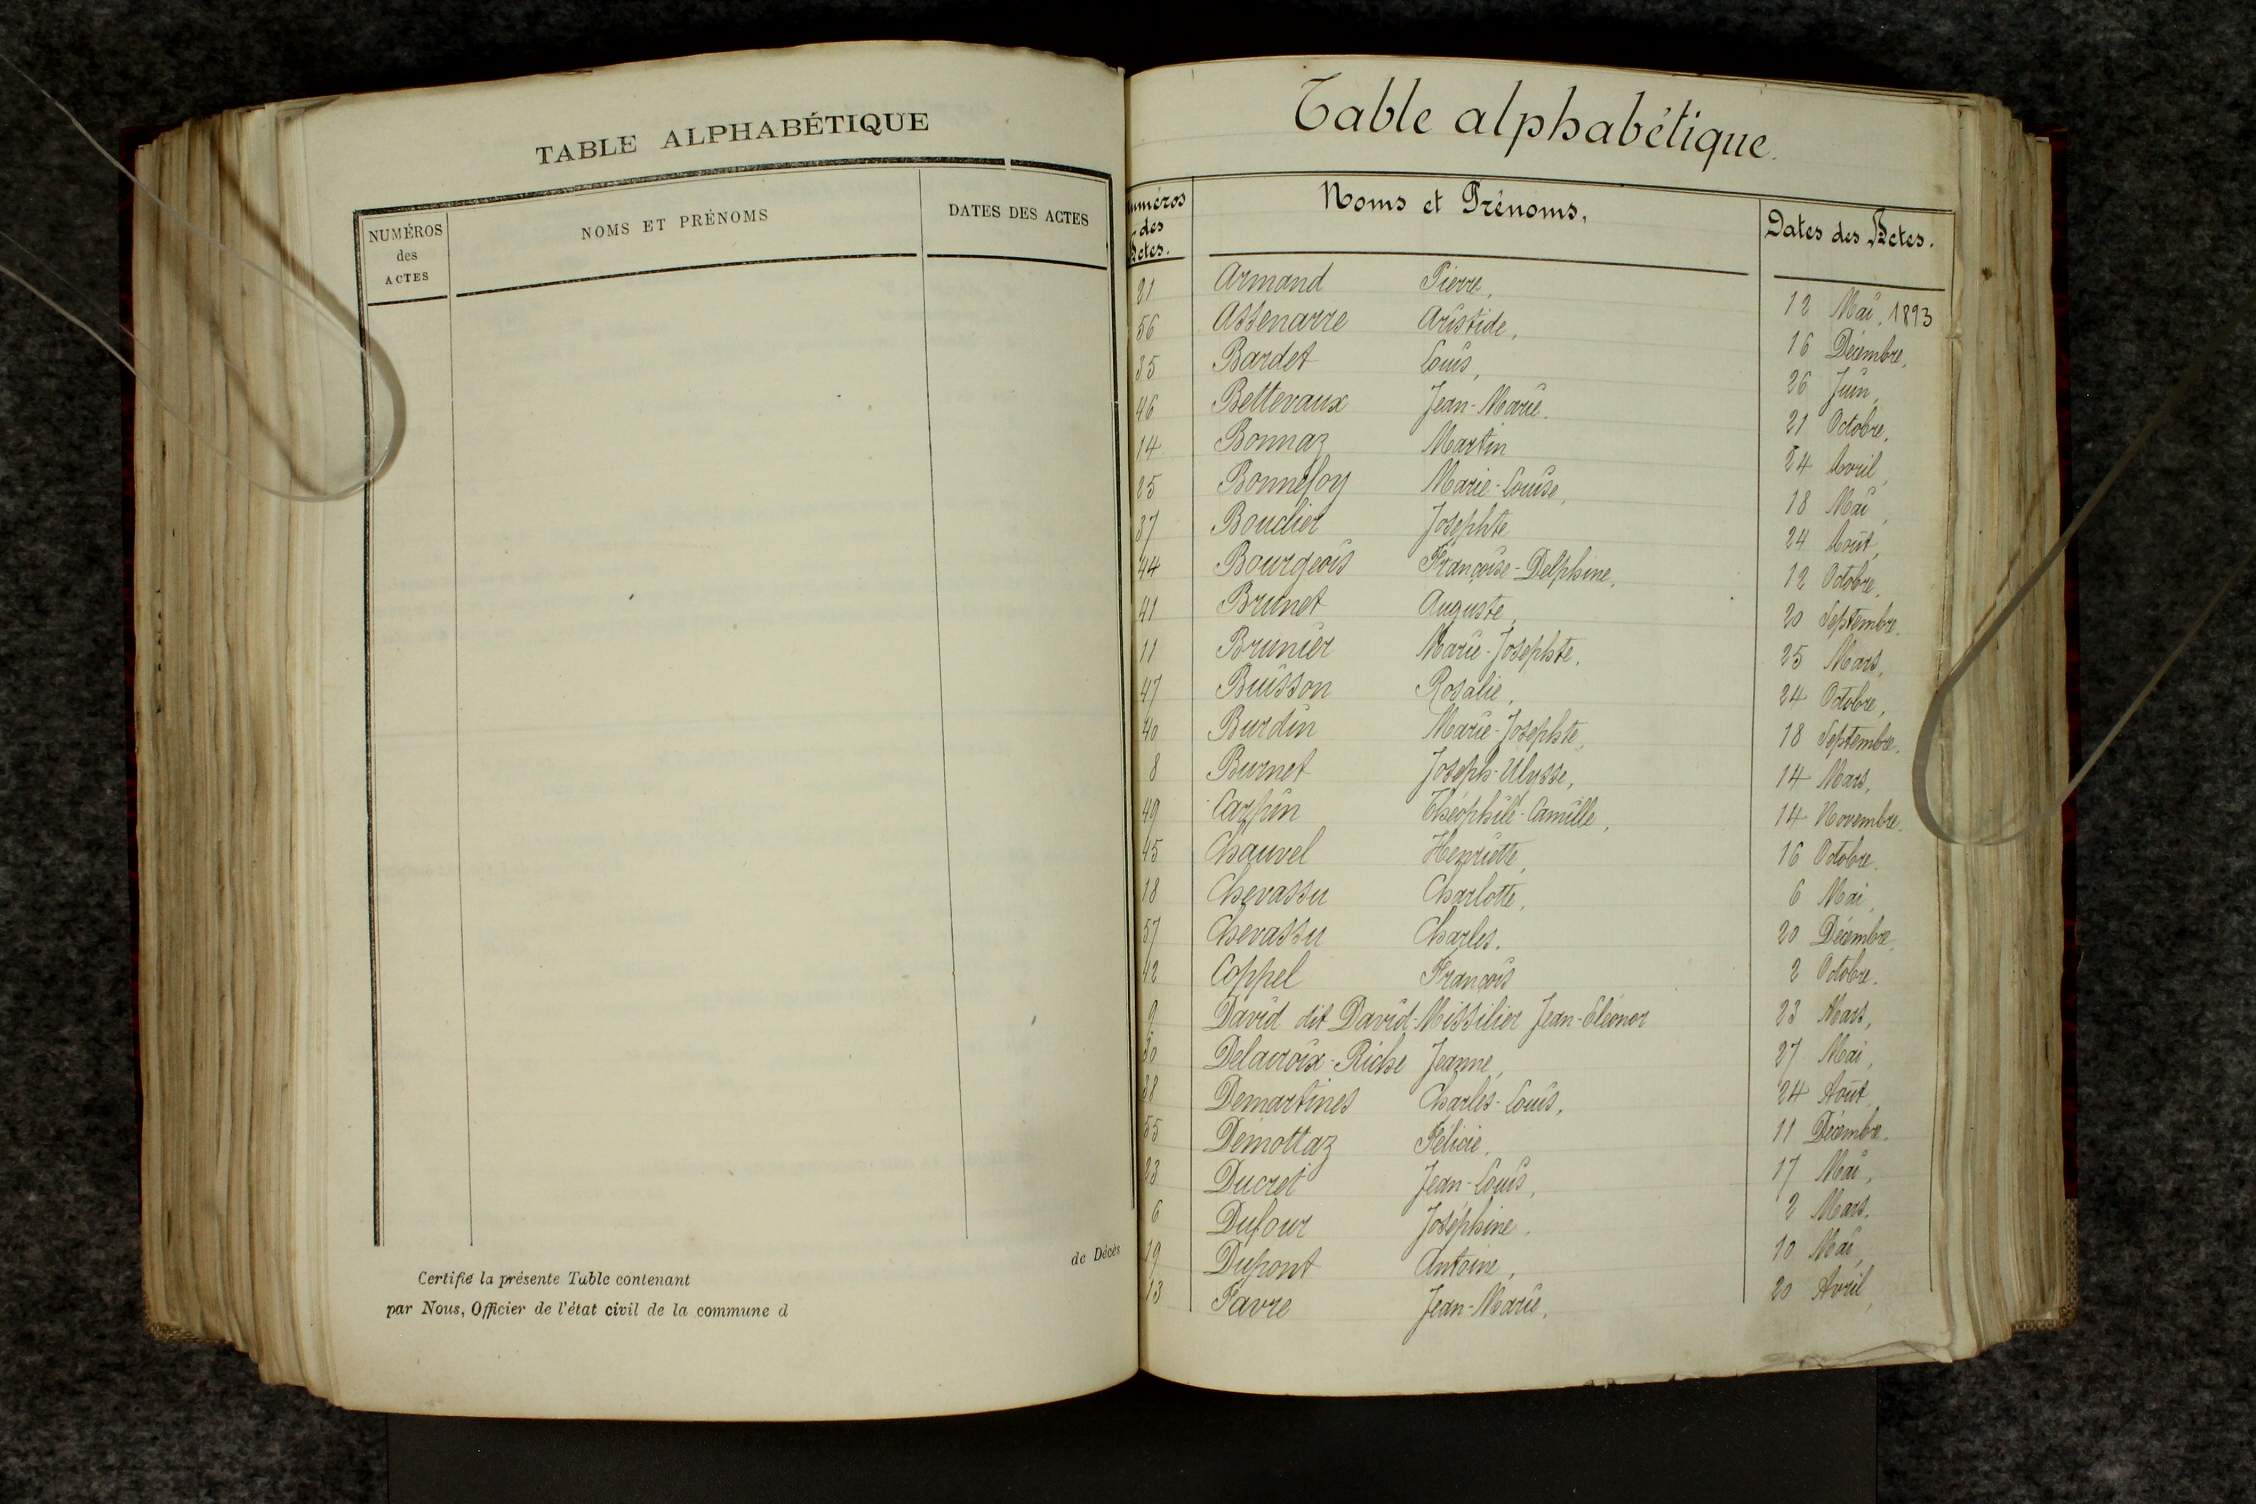 TABLE ALPHABÉTIQUE
NUMÉROS des ACTES NOMS ET PRÉNOMS DATES DES ACTES
de Décès
Certifié la présente Table contenant
par Nous, Officier de l'état civil de la commune d
Table alphabétique.
Numéros des Actes. Noms et Prénoms. Dates des Actes.
21 Armand Pierre, 12 Mai, 1893
56 Assenarre Aristide, 16 Décembre,
35 Bardet Louis, 26 Juin,
46 Bettevaux Jean-Marie. 21 Octobre,
14 Bonnaz Martin 24 Avril,
25 Bonnefoy Marie-Louise, 18 Mai,
37 Boudier Josephte 24 Août,
44 Bourgeois Françoise-Delphine, 12 Octobre.
41 Brunet Auguste, 20 Septembre.
11 Brunier Marie-Josephte, 25 Mars,
47 Buisson Rosalie, 24 Octobre,
40 Burdin Marie-Josephte, 18 Septembre.
8 Burnet Joseph-Ulysse, 14 Mars,
49 Carpin Théophile-Camille, 14 Novembre.
45 Chauvel Henriette, 16 Octobre.
18 Chevassu Charlotte, 6 Mai,
57 Chevassu Charles. 20 Décembre,
42 Coppel François 2 Octobre.
9 David dit David-Missilier Jean-Eléonor 23 Mars,
30 Delacroix-Riche Jeanne, 27 Mai,
38 Demartines Charles-Louis, 24 Août
55 Démottaz Félicie, 11 Décembre.
23 Ducret Jean-Louis, 17 Mai,
6 Dufour Joséphine. 2 Mars.
19 Dupont Antoine, 10 Mai,
13 Favre Jean-Marie, 20 Avril,